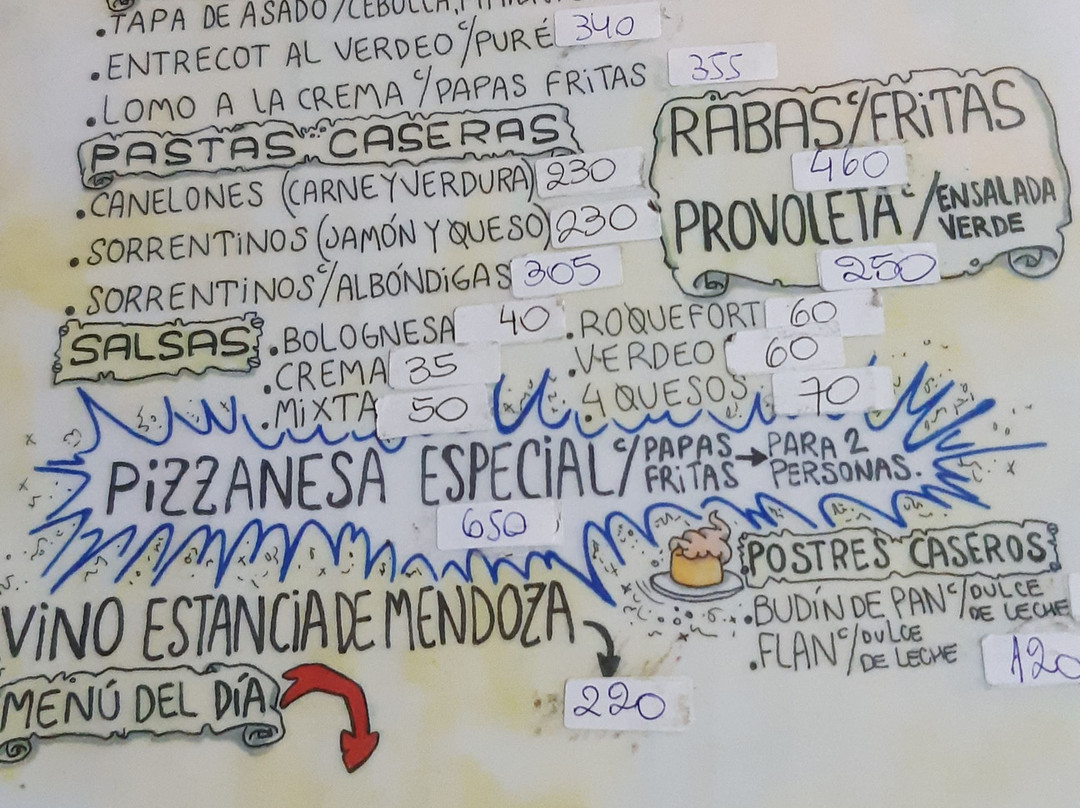 .TAPA DE ASADO/CEBOLLA,
.ENTRECOT AL VERDEO C/PURÉ 340
.LOMO A LA CREMA C/PAPAS FRITAS 355
PASTAS CASERAS
.CANELONES (CARNE Y VERDURA) 230
.SORRENTINOS (JAMÓN Y QUESO) 230
.SORRENTINOS C/ALBÓNDIGAS 305
RABAS C/FRITAS
460
PROVOLETA C/ENSALADA VERDE
250
SALSAS
.BOLOGNESA 40
.CREMA 35
.MIXTA 50
.ROQUEFORT 60
.VERDEO 60
.4 QUESOS 70
PIZZANESA ESPECIAL C/PAPAS FRITAS → PARA 2 PERSONAS.
650
VINO ESTANCIA DE MENDOZA
220
POSTRES CASEROS
.BUDÍN DE PAN C/DULCE DE LECHE
.FLAN C/DULCE DE LECHE 120
MENÚ DEL DÍA